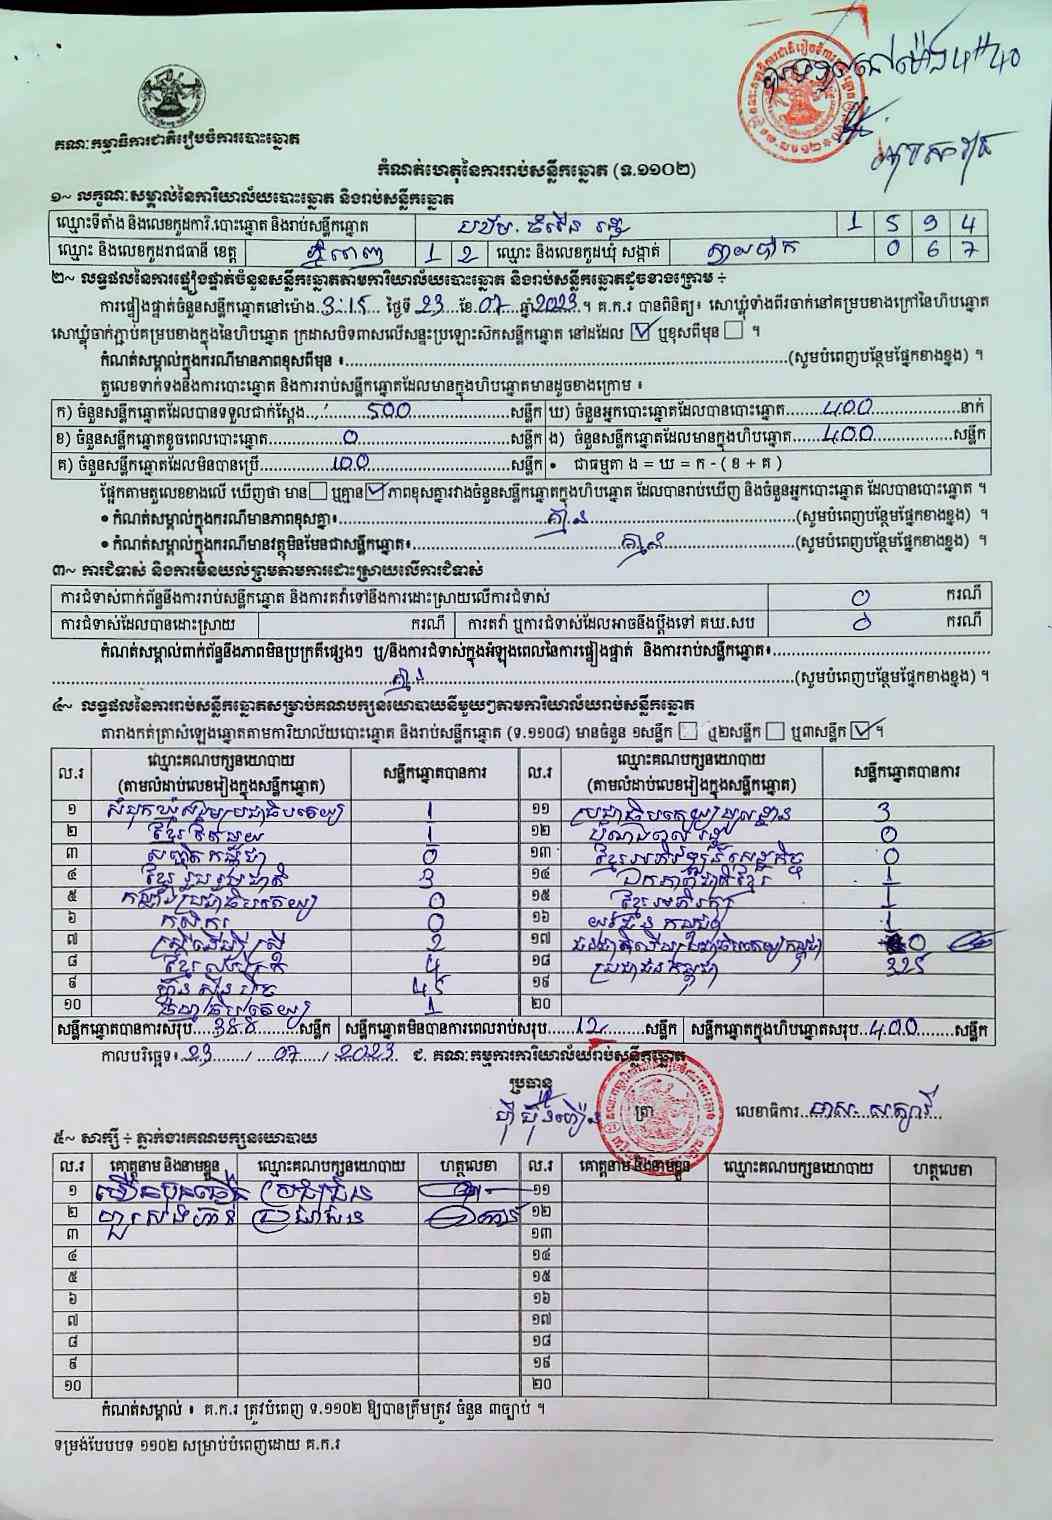 គណៈកម្មាធិការជាតិរៀបចំការបោះឆ្នោត
កំណត់ហេតុនៃការរាប់សន្លឹកឆ្នោត (ទ.១១០២)
១~ លក្ខណៈសម្គាល់នៃការិយាល័យបោះឆ្នោត និងរាប់សន្លឹកឆ្នោត
ឈ្មោះទីតាំង និងលេខកូដការិ.បោះឆ្នោត និងរាប់សន្លឹកឆ្នោត 1 5 9 4
ឈ្មោះ និងលេខកូដរាជធានី ខេត្ត ភ្នំពេញ 1 2 ឈ្មោះ និងលេខកូដឃុំ សង្កាត់ ស្វាយប៉ាក 0 6 7
២~ លទ្ធផលនៃការផ្ទៀងផ្ទាត់ចំនួនសន្លឹកឆ្នោតតាមការិយាល័យបោះឆ្នោត និងរាប់សន្លឹកឆ្នោតដូចខាងក្រោម ÷
ការផ្ទៀងផ្ទាត់ចំនួនសន្លឹកឆ្នោតនៅម៉ោង 3:15 ថ្ងៃទី 23 ខែ 07 ឆ្នាំ 2023 ។ គ.ក.រ បានពិនិត្យ៖ សោឃ្លុំទាំងពីរចាក់នៅគម្របខាងក្រៅនៃហិបឆ្នោត
សោឃ្លុំចាក់ភ្ជាប់គម្របខាងក្នុងនៃហិបឆ្នោត ក្រដាសបិទពាសលើសន្ទះប្រឡោះស៊កសន្លឹកឆ្នោត នៅដដែល ☑ ឬខុសពីមុន ☐ ។
កំណត់សម្គាល់ក្នុងករណីមានភាពខុសពីមុន ៖ (សូមបំពេញបន្ថែមផ្នែកខាងខ្នង) ។
តួលេខទាក់ទងនឹងការបោះឆ្នោត និងការរាប់សន្លឹកឆ្នោតដែលមានក្នុងហិបឆ្នោតមានដូចខាងក្រោម ៖
ក) ចំនួនសន្លឹកឆ្នោតដែលបានទទួលជាក់ស្ដែង 500 សន្លឹក ឃ) ចំនួនអ្នកបោះឆ្នោតដែលបានបោះឆ្នោត 400 នាក់
ខ) ចំនួនសន្លឹកឆ្នោតខូចពេលបោះឆ្នោត 0 សន្លឹក ង) ចំនួនសន្លឹកឆ្នោតដែលមានក្នុងហិបឆ្នោត 400 សន្លឹក
គ) ចំនួនសន្លឹកឆ្នោតដែលមិនបានប្រើ 100 សន្លឹក • ជាធម្មតា ង = ឃ = ក - ( ខ + គ )
ផ្អែកតាមតួលេខខាងលើ ឃើញថា មាន ☐ ឬគ្មាន ☑ ភាពខុសគ្នារវាងចំនួនសន្លឹកឆ្នោតក្នុងហិបឆ្នោត ដែលបានរាប់ឃើញ និងចំនួនអ្នកបោះឆ្នោត ដែលបានបោះឆ្នោត ។
• កំណត់សម្គាល់ក្នុងករណីមានភាពខុសគ្នា៖ គ្មាន (សូមបំពេញបន្ថែមផ្នែកខាងខ្នង) ។
• កំណត់សម្គាល់ក្នុងករណីមានវត្ថុមិនមែនជាសន្លឹកឆ្នោត៖ គ្មាន (សូមបំពេញបន្ថែមផ្នែកខាងខ្នង) ។
៣~ ការជំទាស់ និងការមិនយល់ព្រមតាមការដោះស្រាយលើការជំទាស់
ការជំទាស់ពាក់ព័ន្ធនឹងការរាប់សន្លឹកឆ្នោត និងការតវ៉ាទៅនឹងការដោះស្រាយលើការជំទាស់ 0 ករណី
ការជំទាស់ដែលបានដោះស្រាយ ករណី ការតវ៉ា ឬការជំទាស់ដែលអាចនឹងប្ដឹងទៅ គឃ.សប 0 ករណី
កំណត់សម្គាល់ពាក់ព័ន្ធនឹងភាពមិនប្រក្រតីផ្សេងៗ ឬ/និងការជំទាស់ក្នុងអំឡុងពេលនៃការផ្ទៀងផ្ទាត់ និងការរាប់សន្លឹកឆ្នោត៖
គ្មាន (សូមបំពេញបន្ថែមផ្នែកខាងខ្នង) ។
៤~ លទ្ធផលនៃការរាប់សន្លឹកឆ្នោតសម្រាប់គណបក្សនយោបាយនីមួយៗតាមការិយាល័យរាប់សន្លឹកឆ្នោត
តារាងកត់ត្រាសំឡេងឆ្នោតតាមការិយាល័យបោះឆ្នោត និងរាប់សន្លឹកឆ្នោត (ទ.១១០៨) មានចំនួន ១សន្លឹក ☐ ឬ២សន្លឹក ☐ ឬ៣សន្លឹក ☑ ។
ល.រ ឈ្មោះគណបក្សនយោបាយ សន្លឹកឆ្នោតបានការ ល.រ ឈ្មោះគណបក្សនយោបាយ សន្លឹកឆ្នោតបានការ
(តាមលំដាប់លេខរៀងក្នុងសន្លឹកឆ្នោត) (តាមលំដាប់លេខរៀងក្នុងសន្លឹកឆ្នោត)
១ សំបុកឃ្មុំសង្គមប្រជាធិបតេយ្យ 1 ១១ ប្រជាធិបតេយ្យមូលដ្ឋាន 3
២ ខ្មែរតែមួយ 1 ១២ 0
៣ 0 ១៣ ខ្មែរអភិវឌ្ឍន៍សេដ្ឋកិច្ច 0
៤ ខ្មែររួបរួមជាតិ 3 ១៤ ឯកភាពជាតិខ្មែរ 1
៥ កម្លាំងប្រជាធិបតេយ្យ 0 ១៥ ខ្មែរអភិរក្ស 1
៦ កសិករ 0 ១៦ យុវជនកម្ពុជា 1
៧ ស្ត្រីដើម្បីស្ត្រី 2 ១៧ ជនជាតិដើមប្រជាធិបតេយ្យកម្ពុជា 0
៨ ខ្មែរឈប់ក្រ 4 ១៨ ប្រជាជនកម្ពុជា 325
៩ ហ៊្វុនស៊ិនប៉ិច 45 ១៩
១០ ធម្មាធិបតេយ្យ 1 ២០
សន្លឹកឆ្នោតបានការសរុប 388 សន្លឹក សន្លឹកឆ្នោតមិនបានការពេលរាប់សរុប 12 សន្លឹក សន្លឹកឆ្នោតក្នុងហិបឆ្នោតសរុប 400 សន្លឹក
កាលបរិច្ឆេទ៖ 23 / 07 / 2023 ជ. គណៈកម្មការការិយាល័យរាប់សន្លឹកឆ្នោត
ប្រធាន
ត្រា លេខាធិការ
៥~ សាក្សី ÷ ភ្នាក់ងារគណបក្សនយោបាយ
ល.រ គោត្តនាម និងនាមខ្លួន ឈ្មោះគណបក្សនយោបាយ ហត្ថលេខា ល.រ គោត្តនាម និងនាមខ្លួន ឈ្មោះគណបក្សនយោបាយ ហត្ថលេខា
១ ប្រជាជន ១១
២ ប្រជាជន ១២
៣ ១៣
៤ ១៤
៥ ១៥
៦ ១៦
៧ ១៧
៨ ១៨
៩ ១៩
១០ ២០
កំណត់សម្គាល់ ៖ គ.ក.រ ត្រូវបំពេញ ទ.១១០២ ឱ្យបានត្រឹមត្រូវ ចំនួន ៣ច្បាប់ ។
ទម្រង់បែបបទ ១១០២ សម្រាប់បំពេញដោយ គ.ក.រ